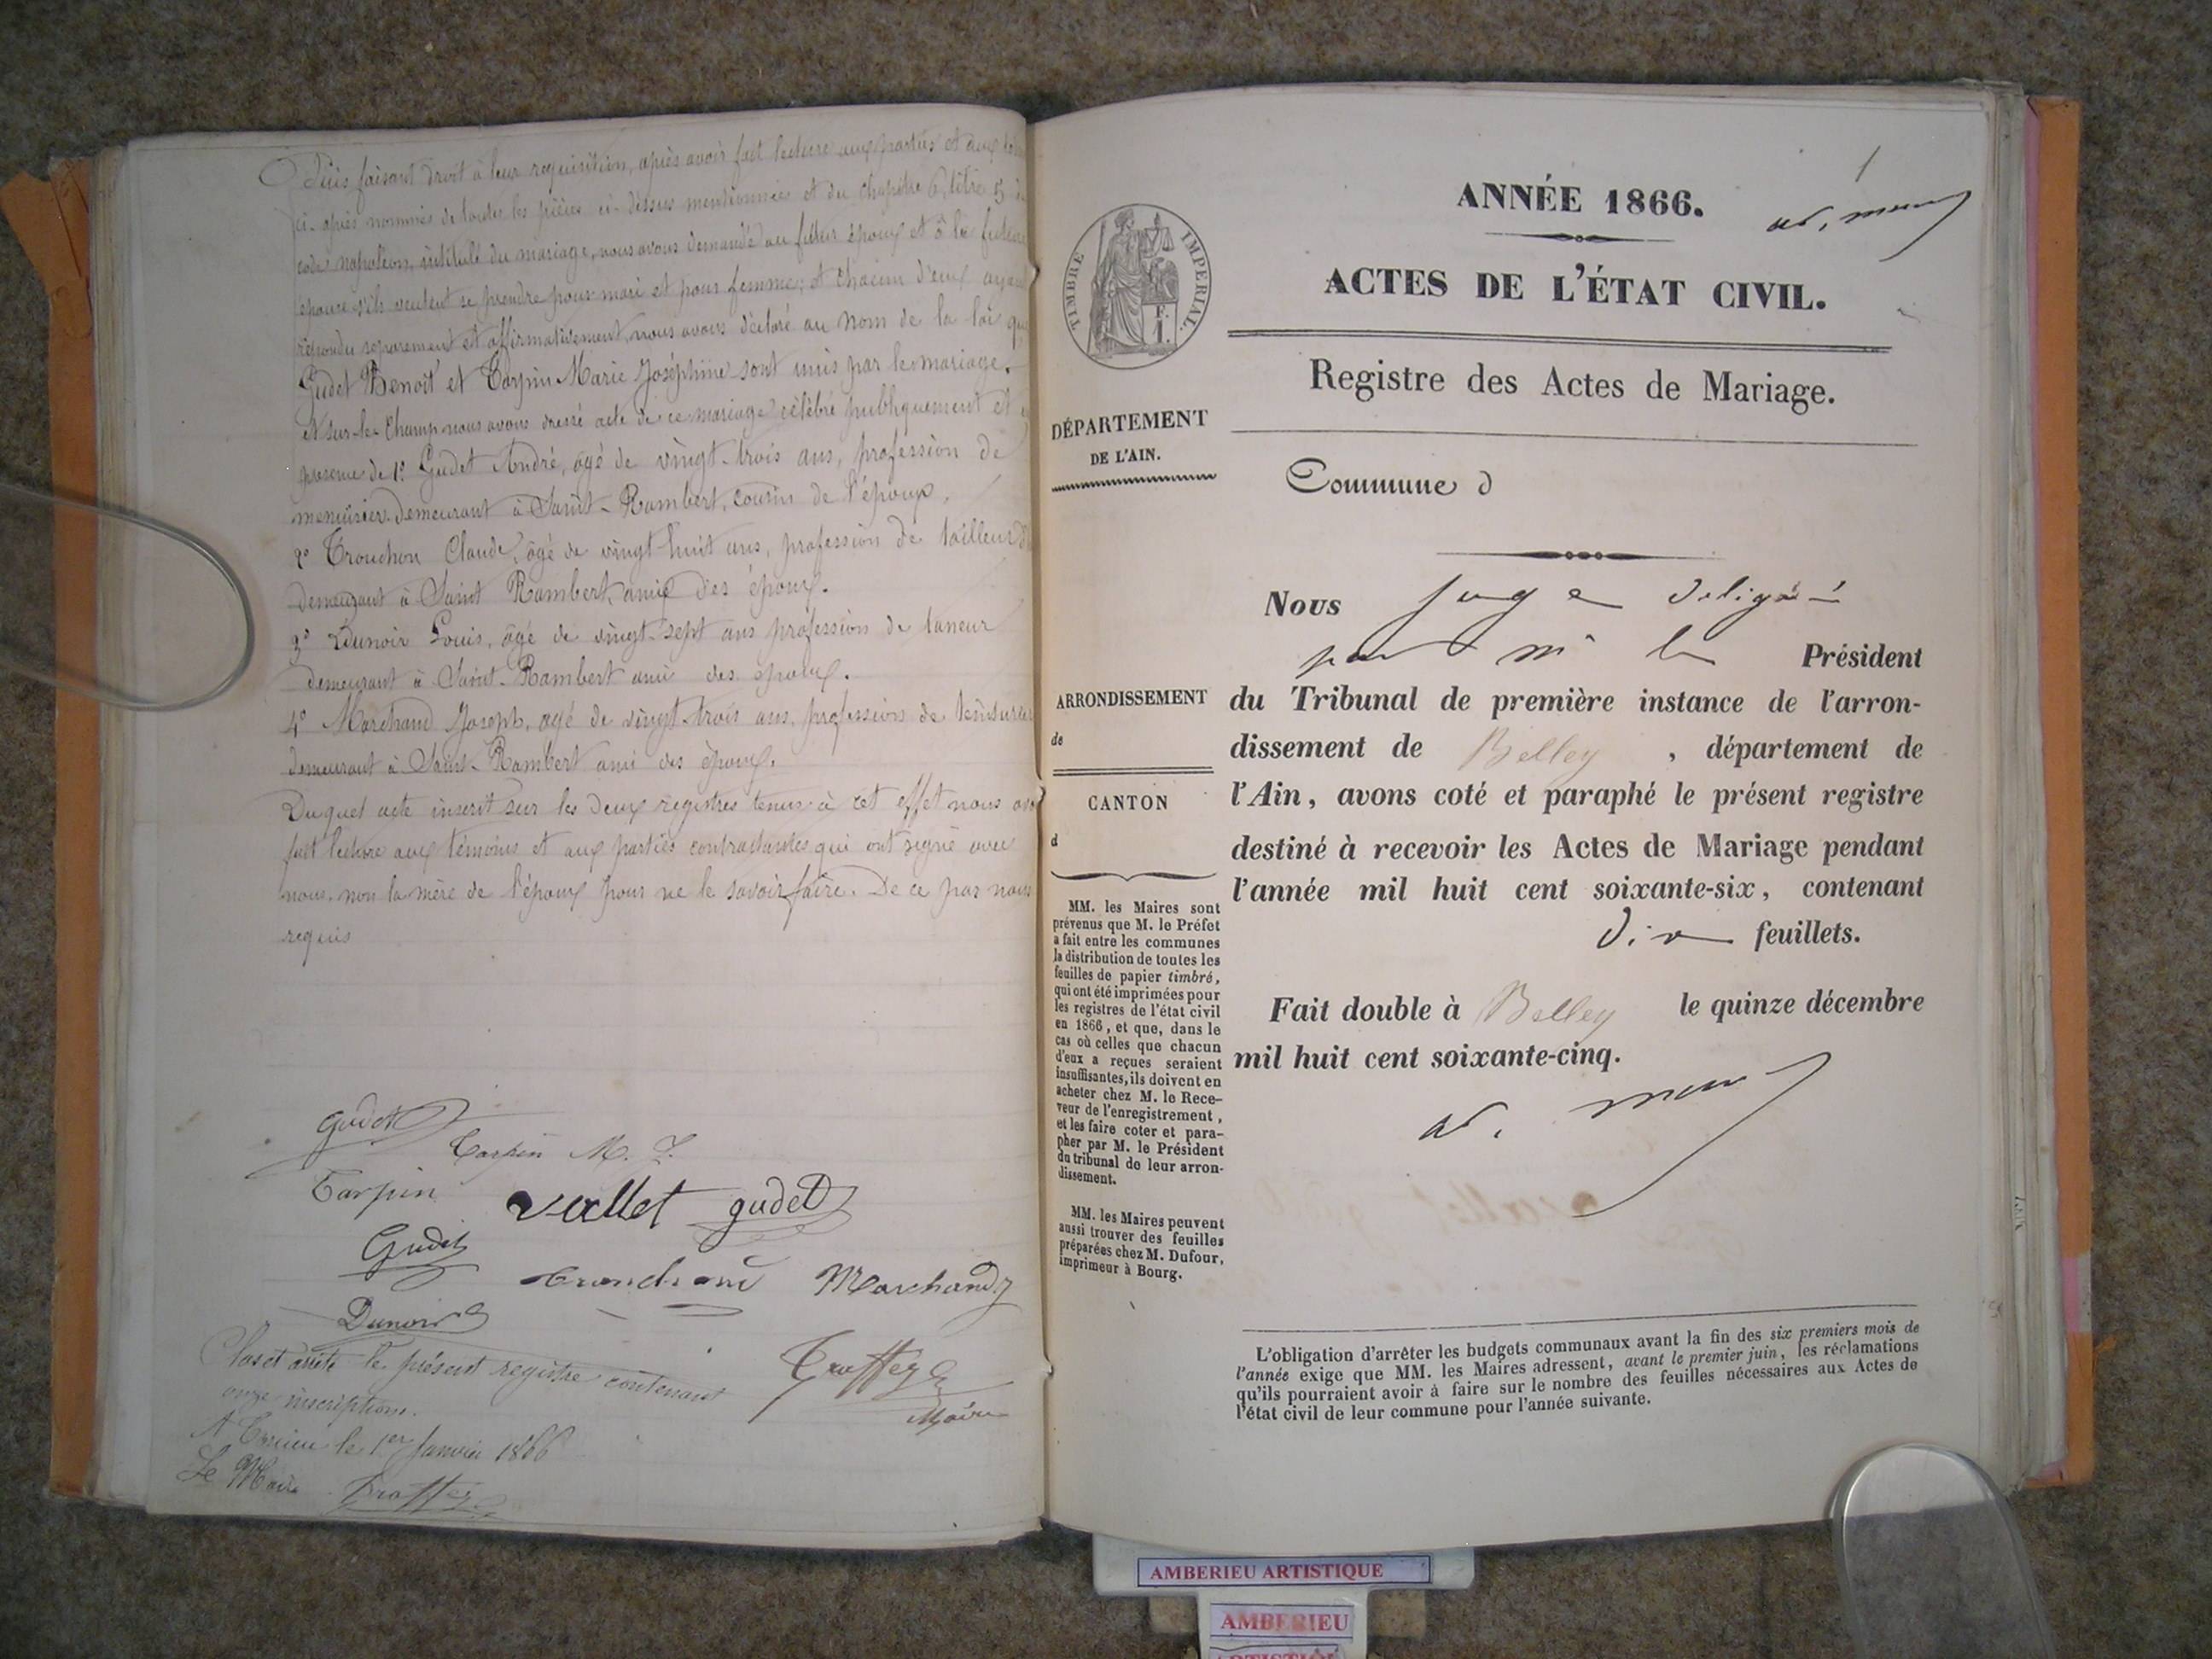 Puis faisant droit à leur requisition, après avoir fait lecture aux parties et aux
ci-après nommés de toutes les pièces ci-dessus mentionnées et du chapitre 6, titre 5
code napoléon, intitulé du mariage, nous avons demandé au futur époux et à la future
épouse s'ils veulent se prendre pour mari et pour femme; et chacun d'eux ayant
répondu séparement et affirmativement, nous avons déclaré au nom de la loi que
Gudet Benoît et Tarpin Marie Joséphine sont unis par le mariage.
Et sur-le-champ nous avons dressé acte de ce mariage célébré publiquement et
presence de 1° Gudet André, âgé de vingt-trois ans, profession de
menuisier demeurant à Saint-Rambert, cousin de l'époux.
2° Trouchon Claude, âgé de vingt-huit ans, profession de tailleur
demeurant à Saint Rambert, ami des époux.
3° Dunoir Louis, âgé de vingt-sept ans profession de taneur
demeurant à Saint-Rambert ami des époux.
4° Marchand Joseph, agé de vingt-trois ans, profession de teinturier
demeurant à Saint-Rambert ami des époux.
Duquel acte inscrit sur les deux registres tenus à cet effet nous avons
fait lecture aux témoins et aux parties contractantes qui ont signé avec
nous, non la mère de l'époux pour ne le savoir faire. De ce par nous
requis
gudet
Tarpin M. J.
Tarpin vallet gudet
Gudet
trouchon Marchand
Dunoir
Clos et arrêté le présent registre contenant
onze inscriptions.
Maire
A Torcieu le 1er Janvier 1866
Le Maire
ANNÉE 1866.
1
TIMBRE IMPERIAL.
ACTES DE L'ÉTAT CIVIL.
Registre des Actes de Mariage.
DÉPARTEMENT
DE L'AIN.
Commune d
Nous juge délégué
par mr le Président
ARRONDISSEMENT
de
CANTON
d
du Tribunal de première instance de l'arron-
dissement de Belley , département de
l'Ain, avons coté et paraphé le présent registre
destiné à recevoir les Actes de Mariage pendant
l'année mil huit cent soixante-six, contenant
dix feuillets.
Fait double à Belley le quinze décembre
mil huit cent soixante-cinq.
MM. les Maires sont
prévenus que M. le Préfet
a fait entre les communes
la distribution de toutes les
feuilles de papier timbré,
qui ont été imprimées pour
les registres de l'état civil
en 1866, et que, dans le
cas où celles que chacun
d'eux a reçues seraient
insuffisantes, ils doivent en
acheter chez M. le Rece-
veur de l'enregistrement,
et les faire coter et para-
pher par M. le Président
du tribunal de leur arron-
dissement.
MM. les Maires peuvent
aussi trouver des feuilles
préparées chez M. Dufour,
imprimeur à Bourg.
L'obligation d'arrêter les budgets communaux avant la fin des six premiers mois de
l'année exige que MM. les Maires adressent, avant le premier juin, les réclamations
qu'ils pourraient avoir à faire sur le nombre des feuilles nécessaires aux Actes de
l'état civil de leur commune pour l'année suivante.
AMBERIEU ARTISTIQUE
AMBERIEU
ARTISTIQUE